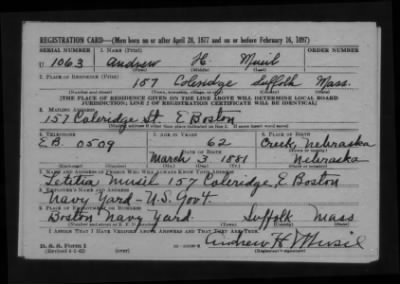 REGISTRATION CARD—(Men born on or after April 28, 1877 and on or before February 16, 1897)
SERIAL NUMBER 1. NAME (Print) ORDER NUMBER
U 1063 Andrew H. Musil
(First) (Middle) (Last)
2. PLACE OF RESIDENCE (Print)
157 Coleridge Suffolk Mass.
(Number and street) (Town, township, village, or city) (County) (State)
[THE PLACE OF RESIDENCE GIVEN ON THE LINE ABOVE WILL DETERMINE LOCAL BOARD
JURISDICTION; LINE 2 OF REGISTRATION CERTIFICATE WILL BE IDENTICAL]
3. MAILING ADDRESS
157 Coleridge St. E Boston
[Mailing address if other than place indicated on line 2. If same insert word same]
4. TELEPHONE 5. AGE IN YEARS 6. PLACE OF BIRTH
E.B. 0509 62 Creek, Nebraska
DATE OF BIRTH
March 3 1881 Nebraska
(Exchange) (Number) (Mo.) (Day) (Yr.) (State or country)
7. NAME AND ADDRESS OF PERSON WHO WILL ALWAYS KNOW YOUR ADDRESS
Letitia Musil 157 Coleridge, E Boston
8. EMPLOYER'S NAME AND ADDRESS
Navy Yard - U.S. Gov't
9. PLACE OF EMPLOYMENT OR BUSINESS
Boston Navy Yard. Suffolk Mass
(Number and street or R. F. D. number) (Town) (County) (State)
I AFFIRM THAT I HAVE VERIFIED ABOVE ANSWERS AND THAT THEY ARE TRUE.
Andrew H Musil
D. S. S. Form 1
(Registrant's signature)